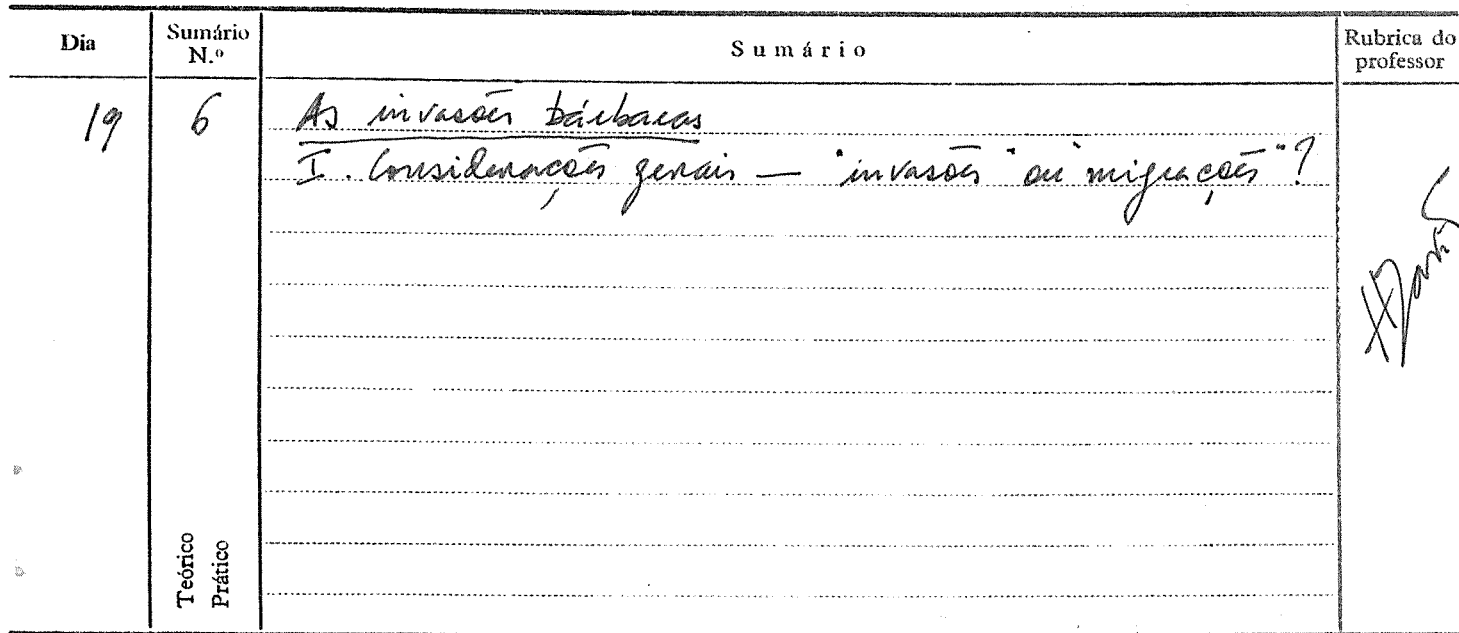 Dia
Sumário N.º
Sumário
Rubrica do professor
19
6
As invasões bárbaras
I. Considerações gerais — "invasões" ou "migrações"?
Teórico
Prático